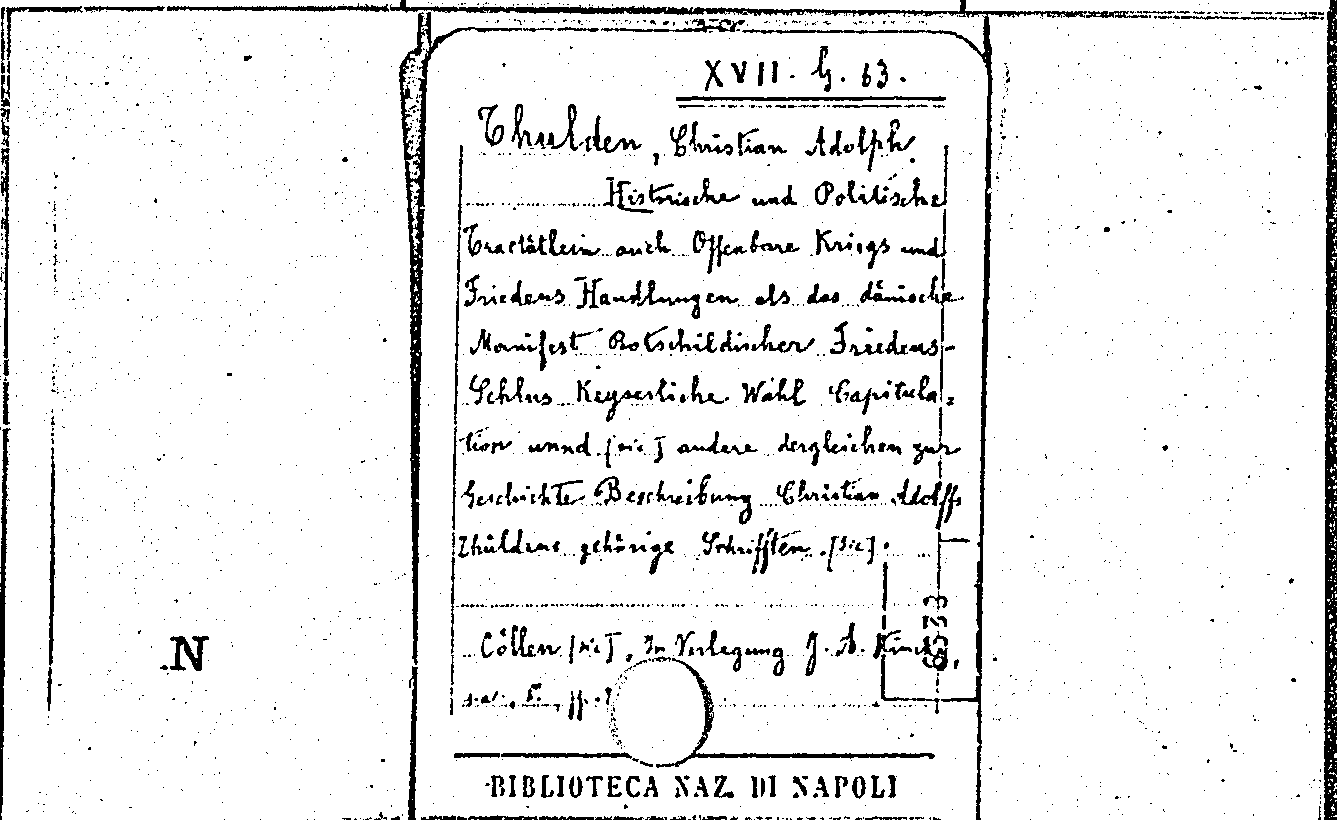 XVII. G. 63.
Thulden, Christian Adolph.
Historische und Politische
Tractätlein auch Offenbare Kriegs und
Friedens Handlungen als das dänische
Manifest Rotschildischer Friedens-
Schlus Keyserliche Wahl Capitula-
tion unnd [sic] andere dergleichen zur
Geschichte Beschreibung Christian Adolffs
Thuldens gehörige Schrifften [sic].
Cöllen [sic], In Verlegung J. A.
6533
s.a., 5., ff.
N
BIBLIOTECA NAZ. DI NAPOLI